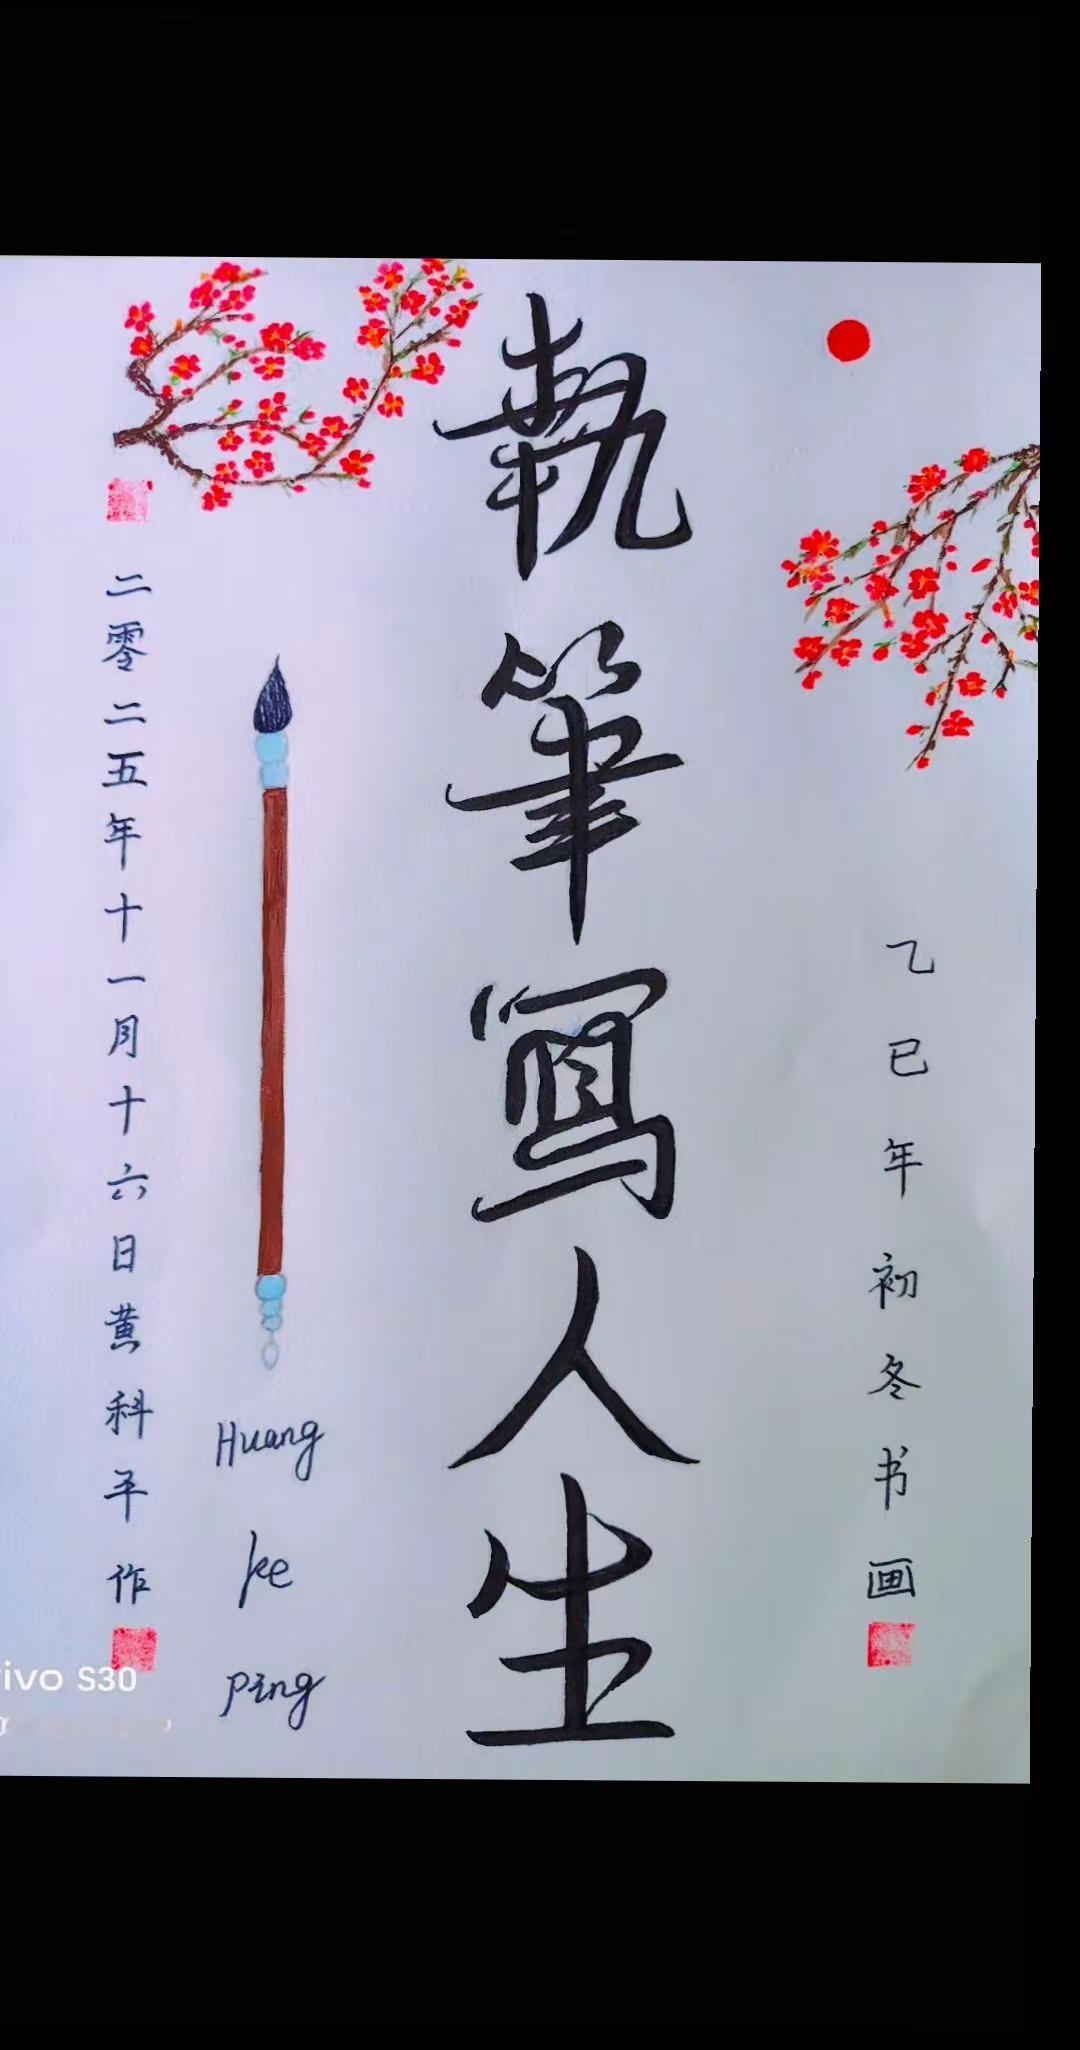 執筆寫人生
乙巳年初冬书画
二零二五年十一月十六日黄科平作
Huang
ke
ping
vivo S30